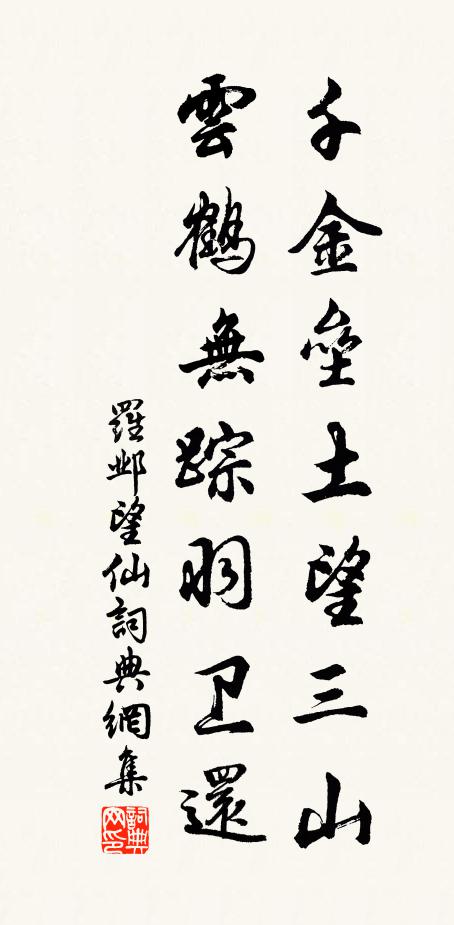 千金垒土望三山
雲鶴無踪羽卫還
羅邺望仙詞典網集
詞典网印